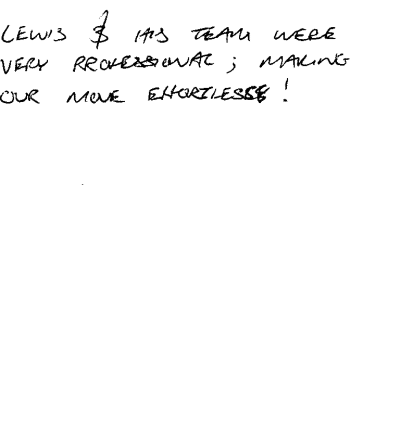 LEWIS & HIS TEAM WERE
VERY PROFESSIONAL; MAKING
OUR MOVE EFFORTLESS!